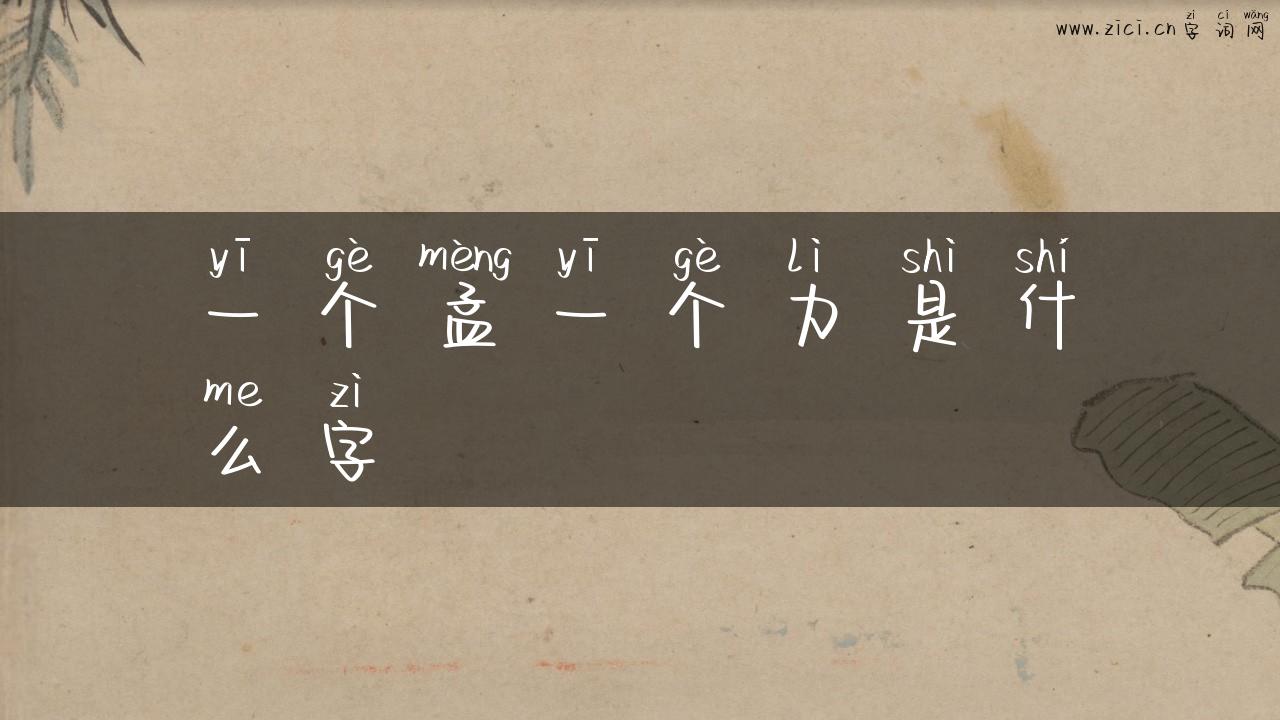 zì cí wǎng
www.zici.cn 字 词 网
yī gè mèng yī gè lì shì shí
一 个 孟 一 个 力 是 什
me zì
么 字